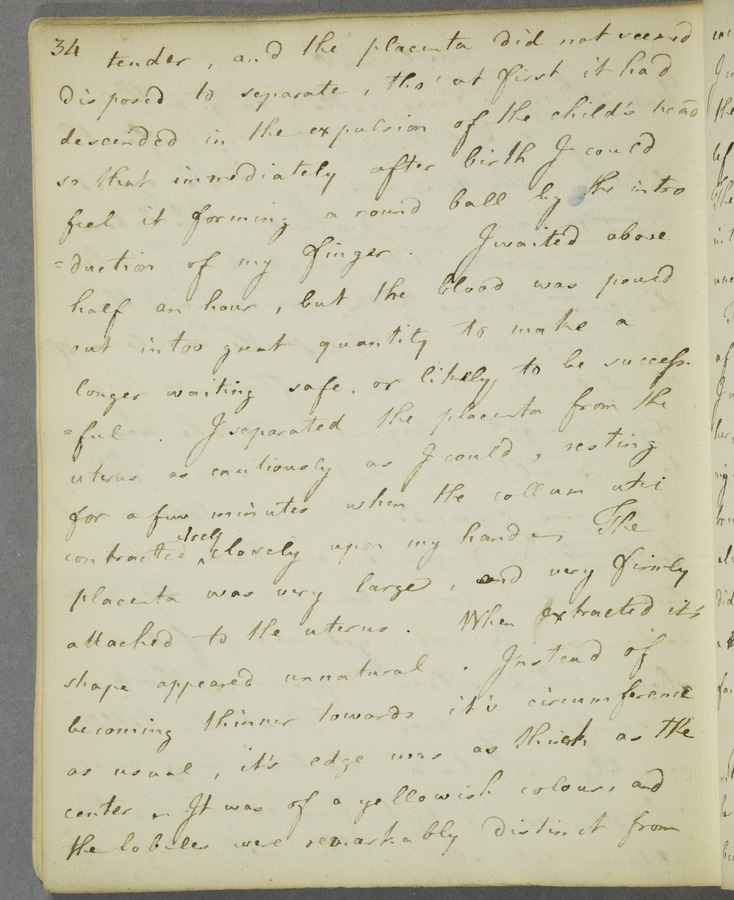 34
tender, and the placenta did not seem
disposed to separate, tho' at first it had
descended in the expulsion of the child's head
so that immediately after birth I could
feel it forming a round ball by the intro
=duction of my finger. I waited above
half an hour, but the blood was poured
out in too great quantity to make a
longer waiting safe, or likely to be success-
=ful. I separated the placenta from the
uterus as cautiously as I could, resting
for a few minutes when the collum uteri
contracted itself closely upon my hand. The
placenta was very large, and very firmly
attached to the uterus. When extracted its
shape appeared unnatural. Instead of
becoming thinner towards it's circumference
as usual, it's edge was as thick as the
center. It was of a yellowish colour, and
the lobules were remarkably distinct from